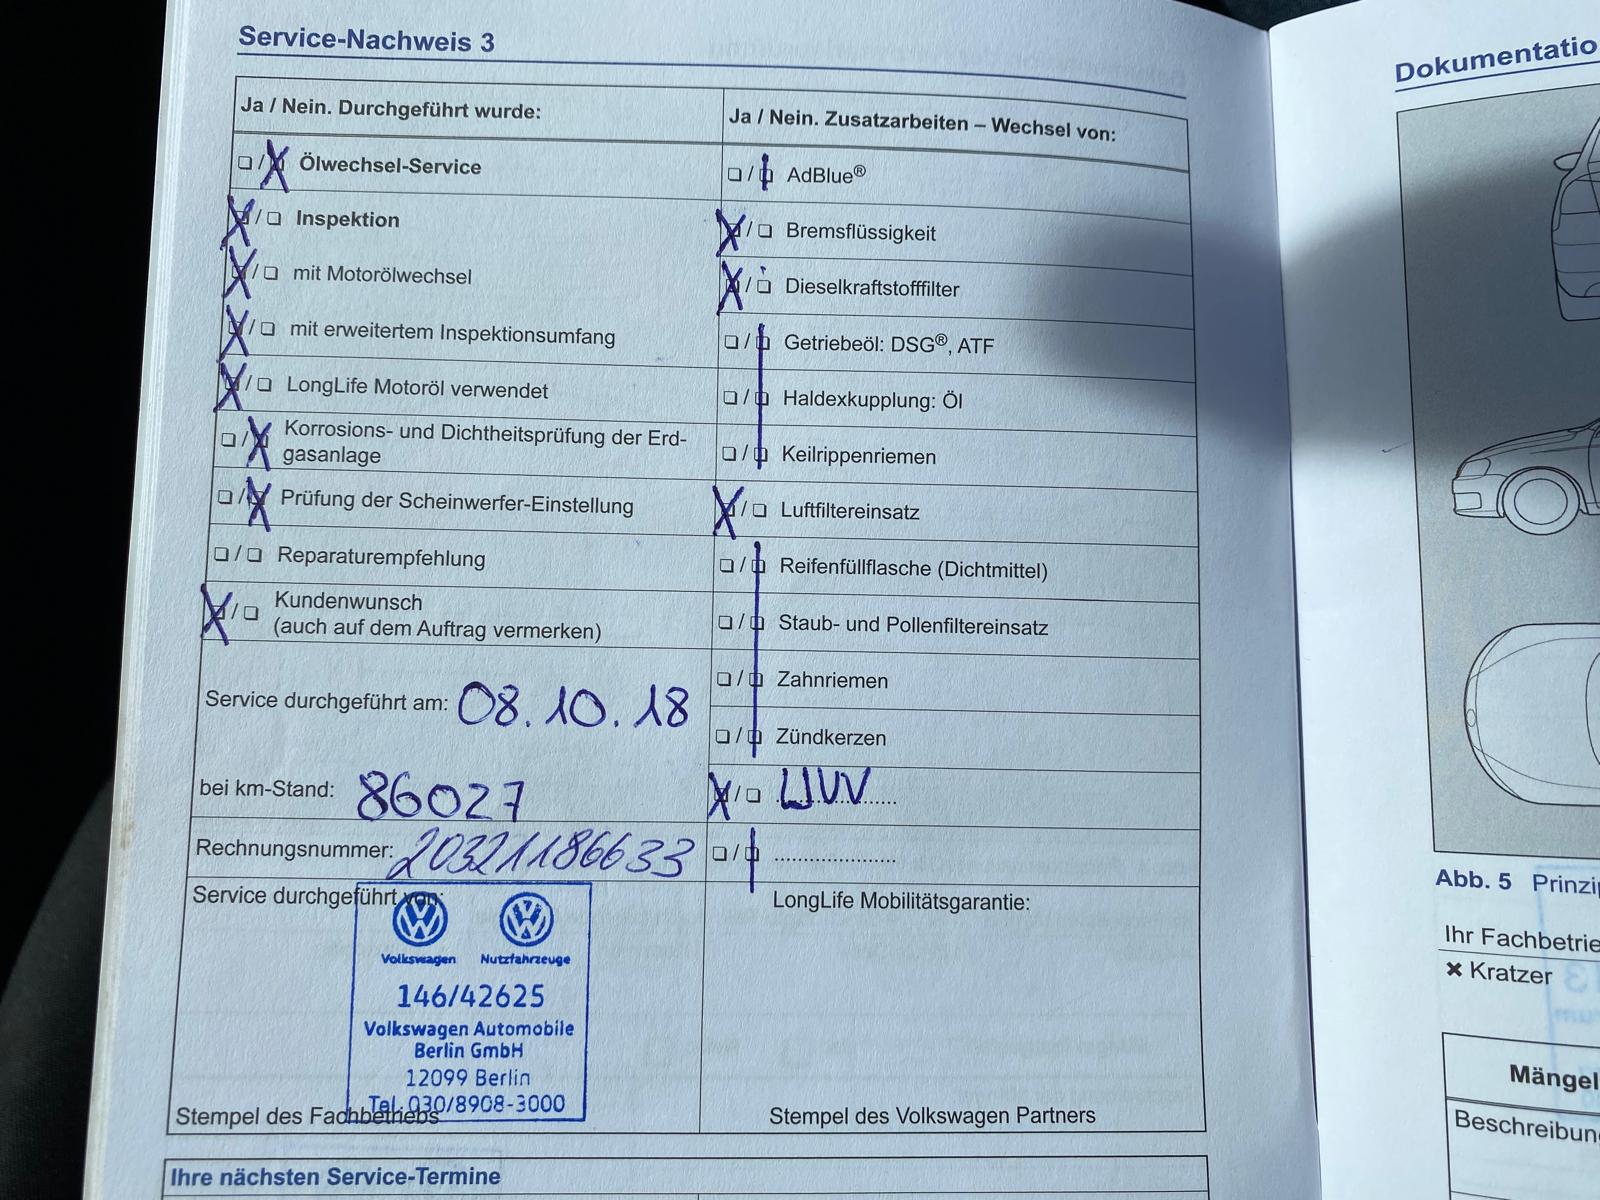 Service-Nachweis 3
Ja / Nein. Durchgeführt wurde:
Ölwechsel-Service
Inspektion
mit Motorölwechsel
mit erweitertem Inspektionsumfang
LongLife Motoröl verwendet
Korrosions- und Dichtheitsprüfung der Erd-
gasanlage
Prüfung der Scheinwerfer-Einstellung
Reparaturempfehlung
Kundenwunsch
(auch auf dem Auftrag vermerken)
Service durchgeführt am: 08.10.18
bei km-Stand: 86027
Rechnungsnummer: 20321186633
Service durchgeführt von:
Volkswagen Nutzfahrzeuge
146/42625
Volkswagen Automobile
Berlin GmbH
12099 Berlin
Tel. 030/8908-3000
Stempel des Fachbetriebs
Ja / Nein. Zusatzarbeiten – Wechsel von:
AdBlue®
Bremsflüssigkeit
Dieselkraftstofffilter
Getriebeöl: DSG®, ATF
Haldexkupplung: Öl
Keilrippenriemen
Luftfiltereinsatz
Reifenfüllflasche (Dichtmittel)
Staub- und Pollenfiltereinsatz
Zahnriemen
Zündkerzen
LongLife Mobilitätsgarantie:
Stempel des Volkswagen Partners
Ihre nächsten Service-Termine
Dokumentatio
Abb. 5 Prinzip
Ihr Fachbetrie
× Kratzer
Mängel
Beschreibun